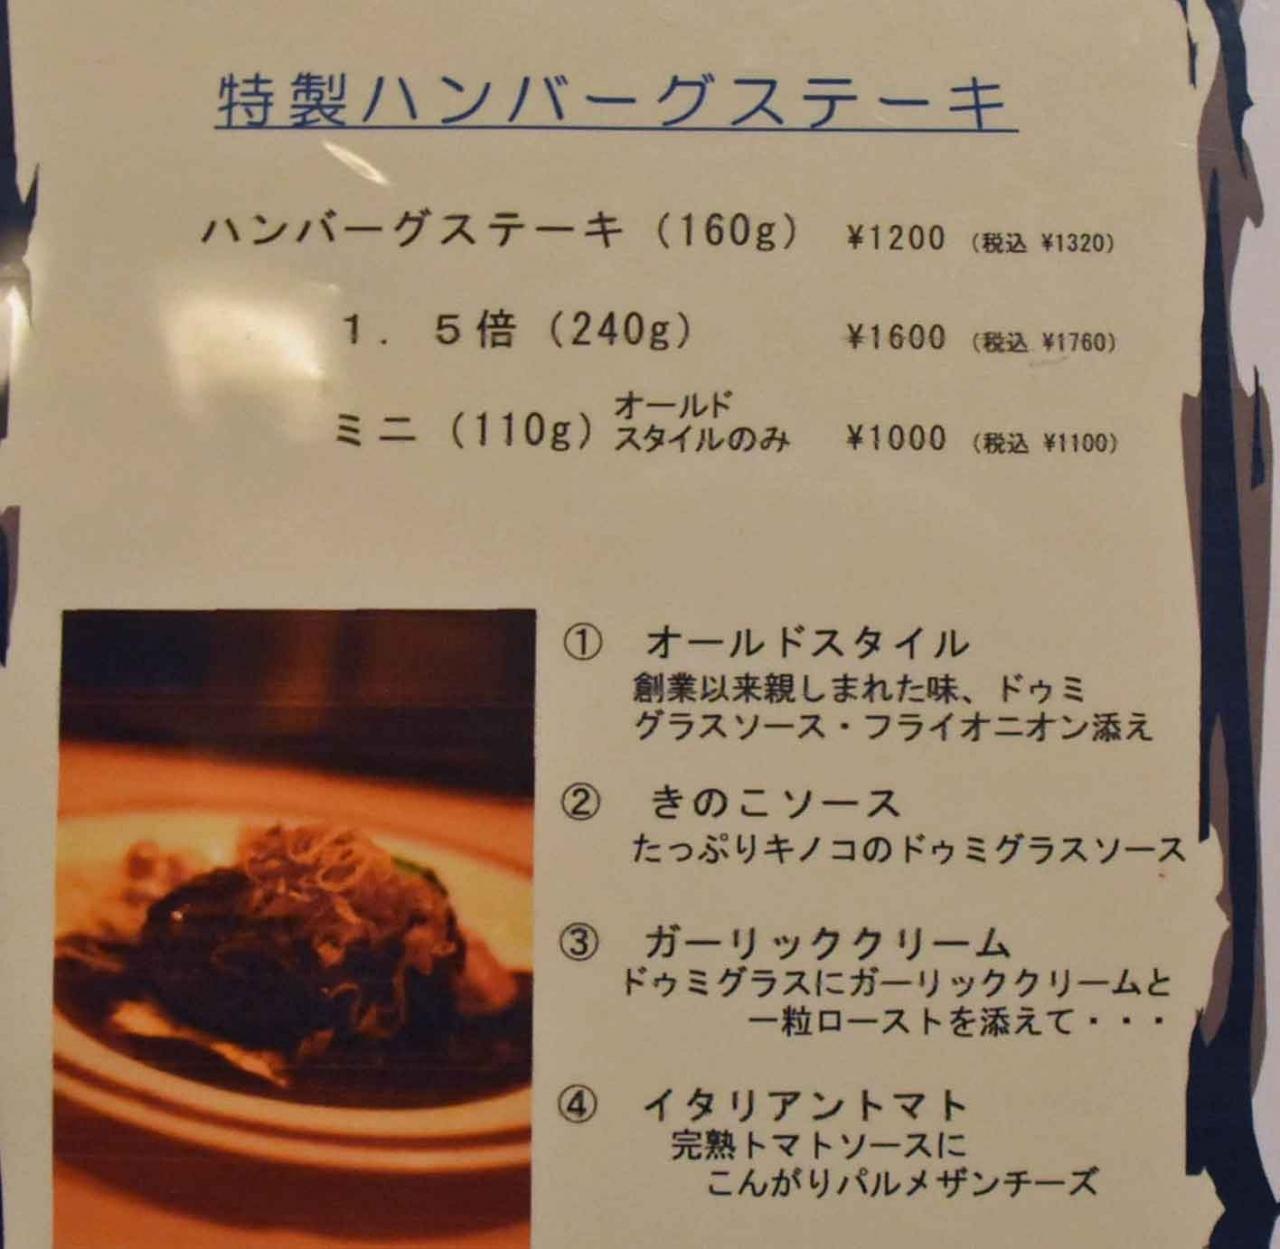 特製ハンバーグステーキ
ハンバーグステーキ（160g） ¥1200 （税込 ¥1320）
１．５倍（240g） ¥1600 （税込 ¥1760）
ミニ（110g）オールド
スタイルのみ ¥1000 （税込 ¥1100）
① オールドスタイル
創業以来親しまれた味、ドゥミ
グラスソース・フライオニオン添え
② きのこソース
たっぷりキノコのドゥミグラスソース
③ ガーリッククリーム
ドゥミグラスにガーリッククリームと
一粒ローストを添えて・・・
④ イタリアントマト
完熟トマトソースに
こんがりパルメザンチーズ